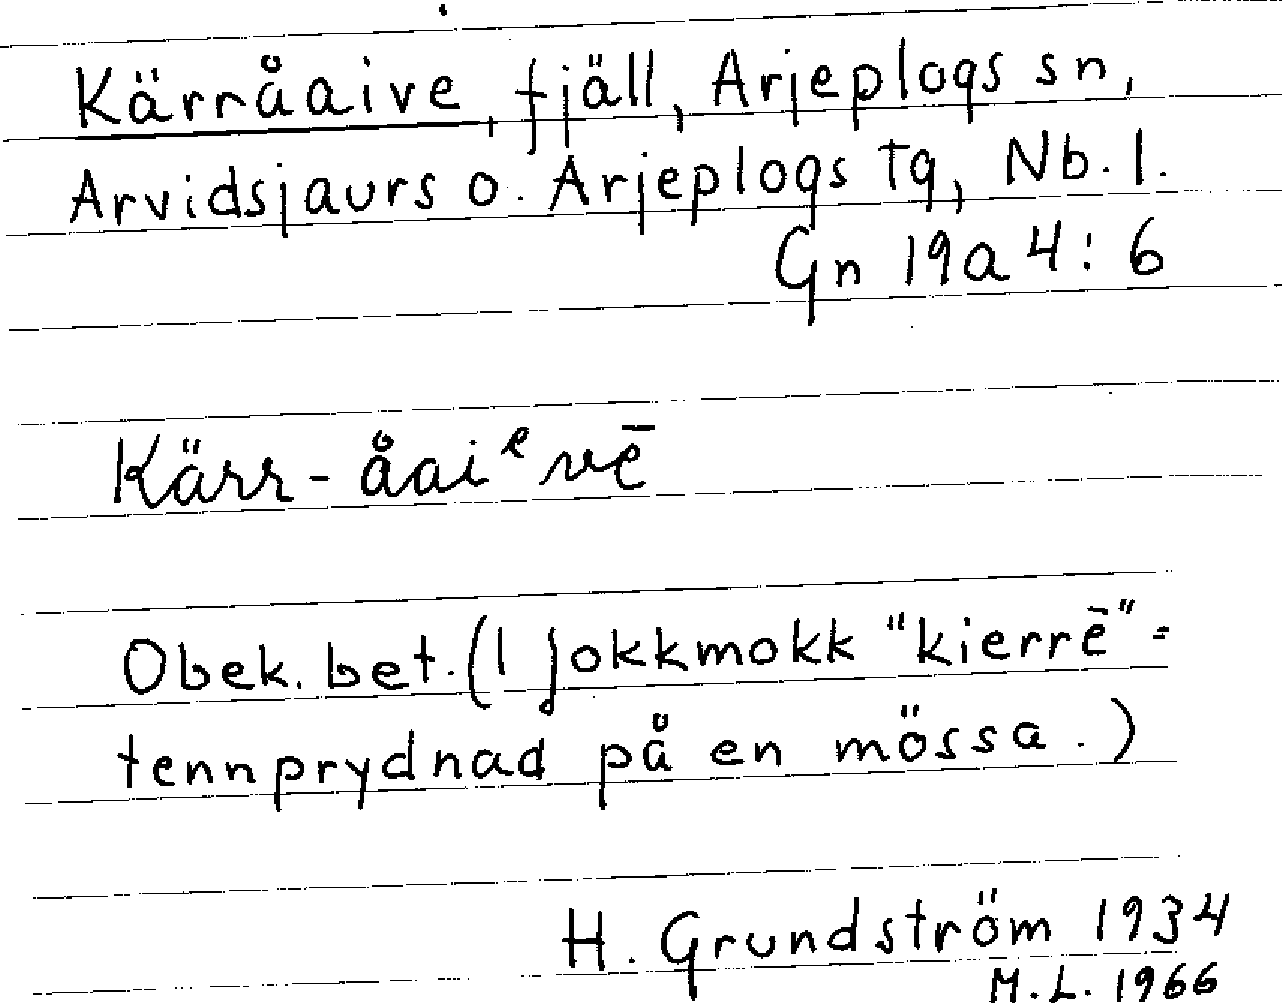 Kärråaive, fjäll, Arjeplogs sn,
Arvidsjaurs o. Arjeplogs tg, Nb. l.
Gn 19a 4: 6
Kärr-åaiᵉvē
Obek. bet. (I Jokkmokk "kierrē" =
tennprydnad på en mössa.)
H. Grundström 1934
M.L. 1966